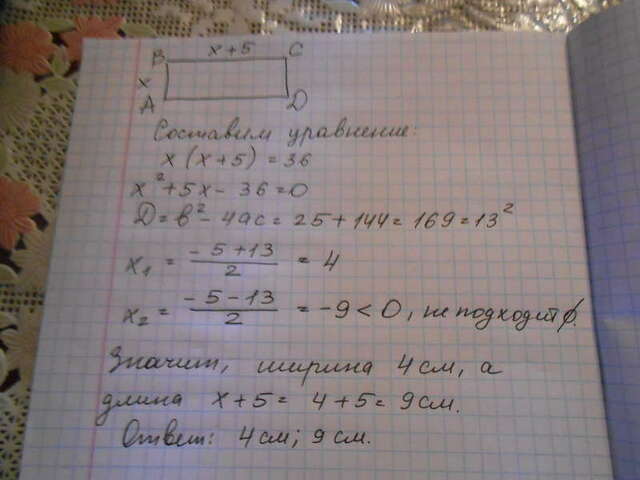 B x+5 C
x
A D
Составим уравнение:
x(x+5)=36
x²+5x-36=0
D=в²-4ac=25+144=169=13²
x₁ = (-5+13)/2 = 4
x₂ = (-5-13)/2 = -9<0, не подходит
Значит, ширина 4 см, а
длина x+5= 4+5= 9 см.
Ответ: 4 см; 9 см.